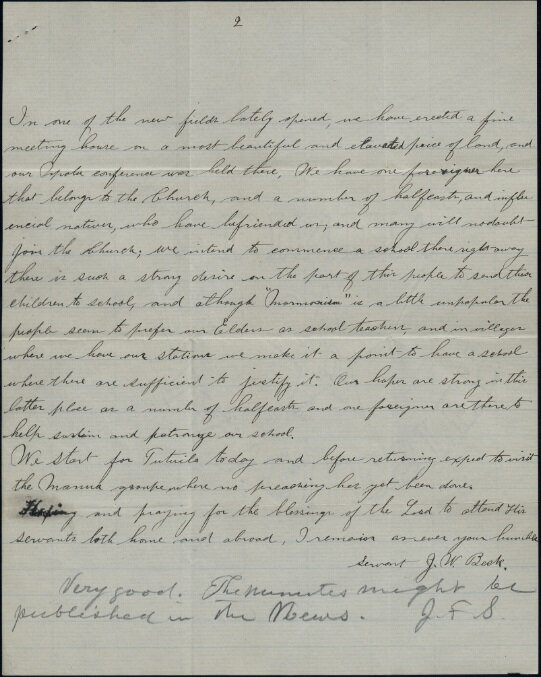 2
In one of the new fields lately opened, we have erected a fine
meeting house on a most beautiful and elevated peice of land, and
our Upolu conference was held there. We have one foreigner here
that belongs to the Church, and a number of halfcasts, and influ
encial natives, who have befriended us, and many will nodoubt
join the Church; we intend to commence a school there right away
there is such a strong desire on the part of this people to send their
children to school, and although "Mormonism" is a little unpopular the
people seem to prefer our Elders as school teachers and in villages
where we have our stations we make it a point to have a school
where there are sufficient to justify it. Our hopes are strong in this
latter place as a number of halfcasts and one foreigner are there to
help sustain and patronize our school.
We start for Tutuila today and before returning expect to visit
the Manua groupe where no preaching has yet been done.
Hoping and praying for the blessings of the Lord to attend His
servants both home and abroad, I remain as ever your humble
servant J. W. Beck.
Very good. The minutes might be
published in the News. J. F. S.